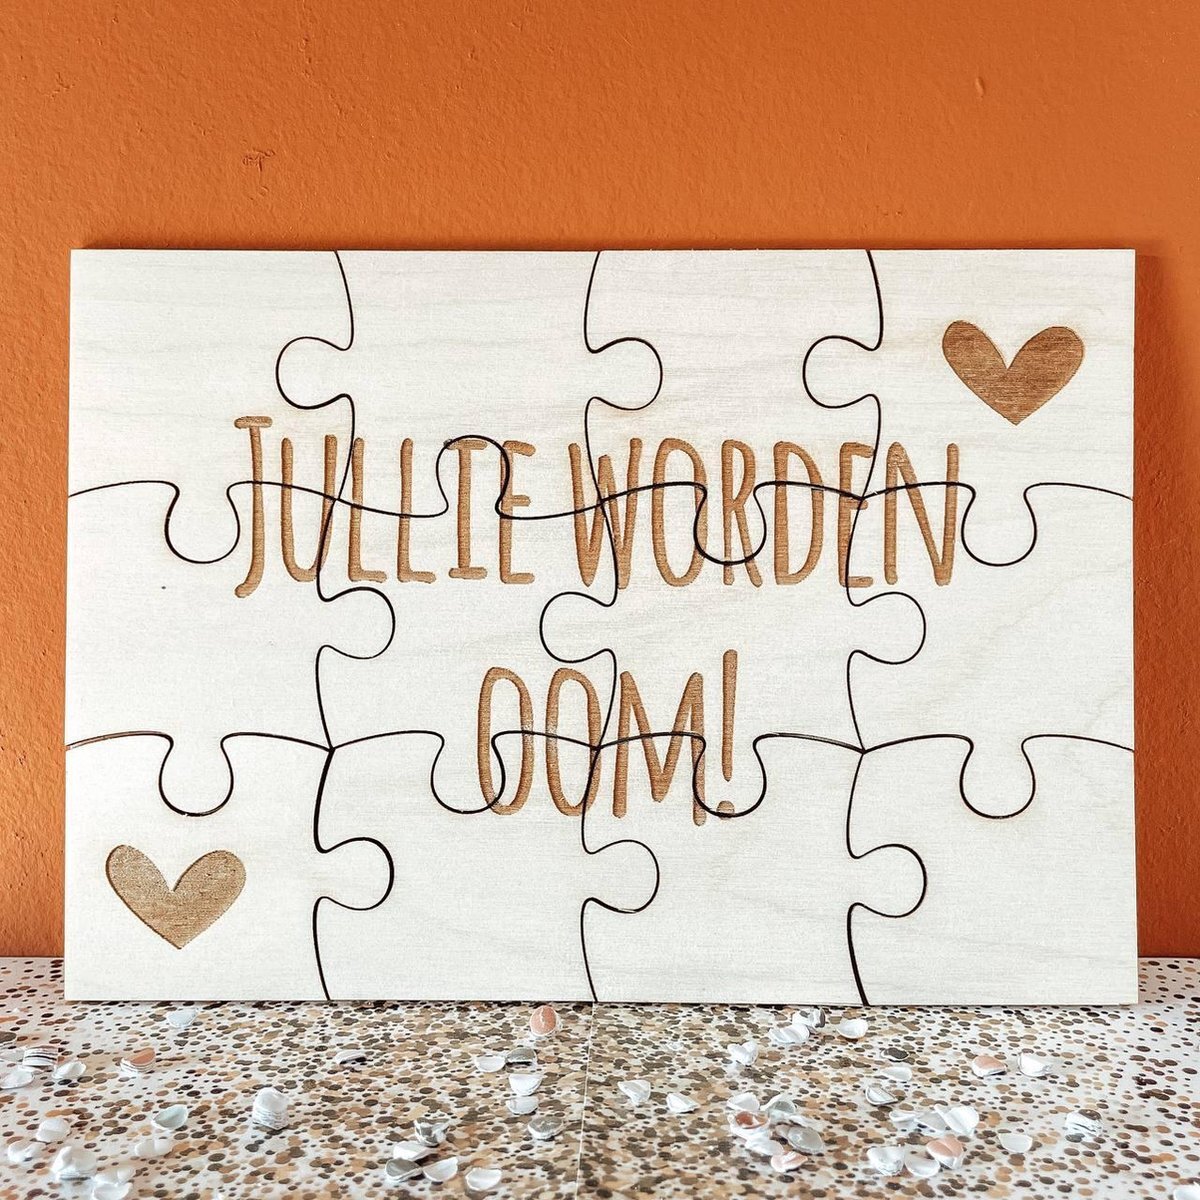 JULLIE WORDEN
OOM!